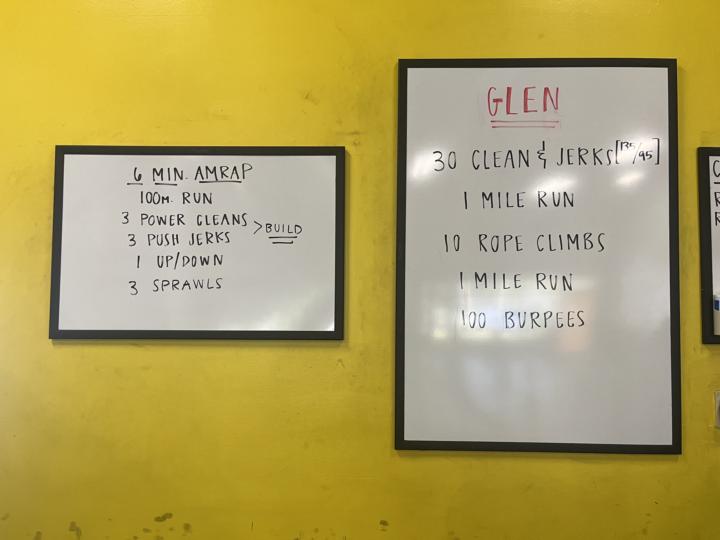 6 MIN. AMRAP
100M. RUN
3 POWER CLEANS
3 PUSH JERKS
> BUILD
1 UP/DOWN
3 SPRAWLS
GLEN
30 CLEAN & JERKS [135/95]
1 MILE RUN
10 ROPE CLIMBS
1 MILE RUN
100 BURPEES